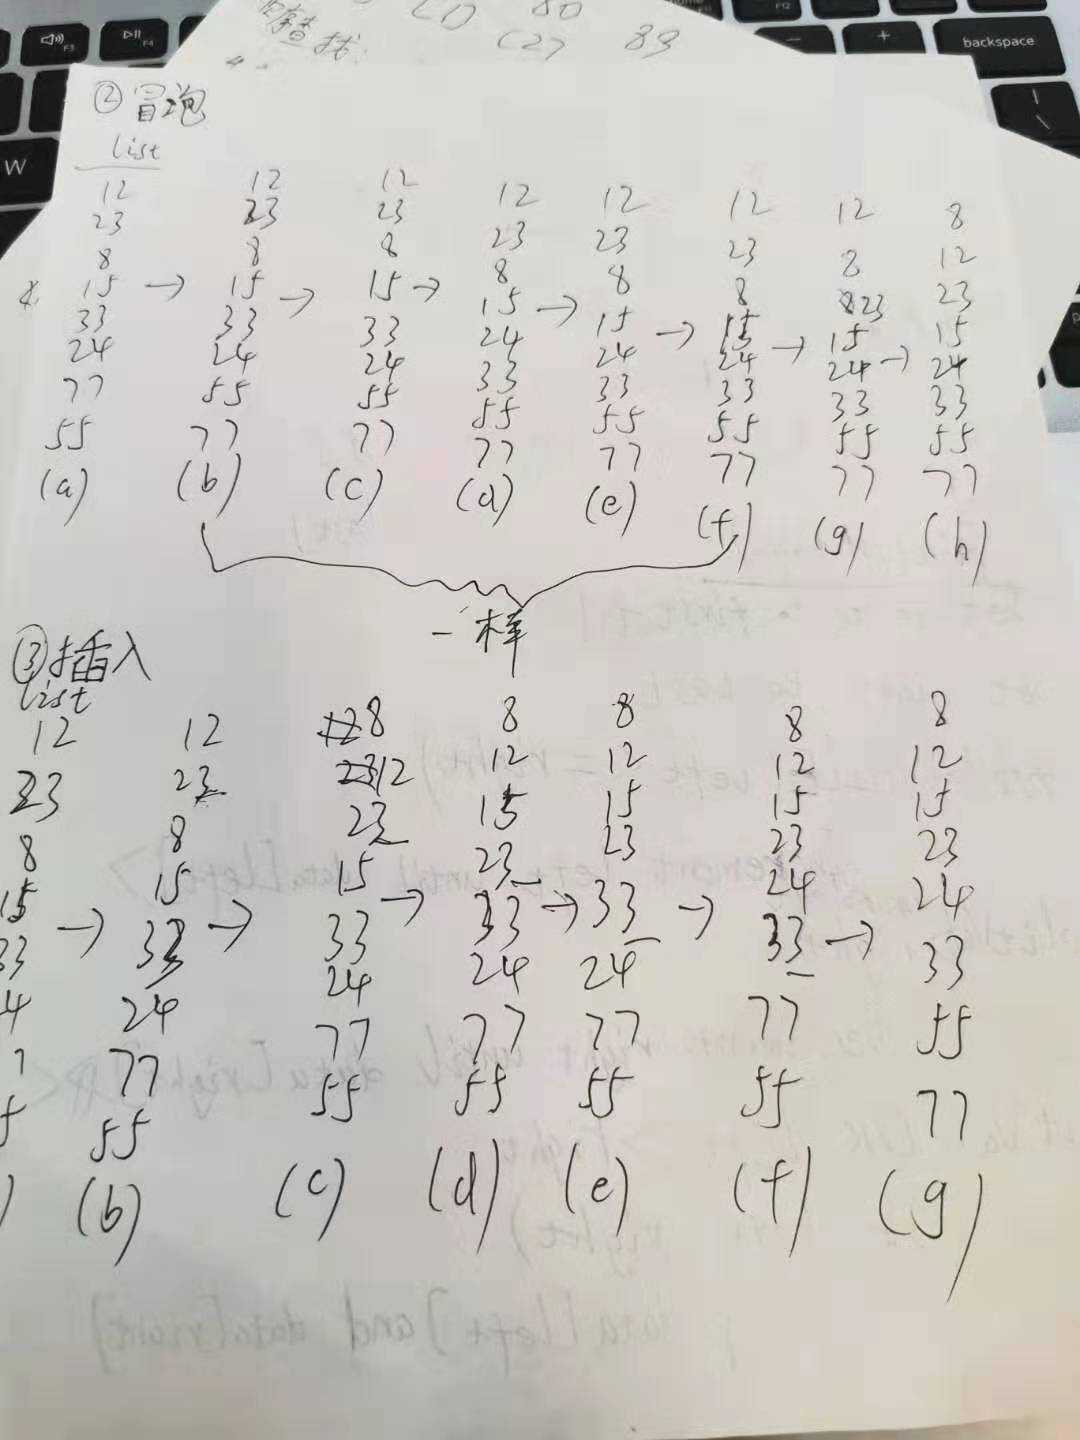 查找:
(1) 80
(2) 89
F3
F4
F12
-
+
backspace
W
②冒泡
list
12 12 12 12 12 12 12 8
23 23 23 23 23 23 8 12
8 8 8 8 8 8 23 23
15 → 15 → 15 → 15 → 15 → 15 → 15 → 15
33 33 33 24 24 24 24 24
24 24 24 33 33 33 33 33
77 55 55 55 55 55 55 55
55 77 77 77 77 77 77 77
(a) (b) (c) (d) (e) (f) (g) (h)
一样
③插入
list
12 12 8 8 8 8 8
23 23 12 12 12 12 12
8 8 23 15 15 15 15
15 15 15 23 23 23 23
33 → 33 → 33 → 33 → 33 → 24 → 24
4 24 24 24 24 33 33
77 77 77 77 77 55
55 55 55 55 55 77
) (b) (c) (d) (e) (f) (g)